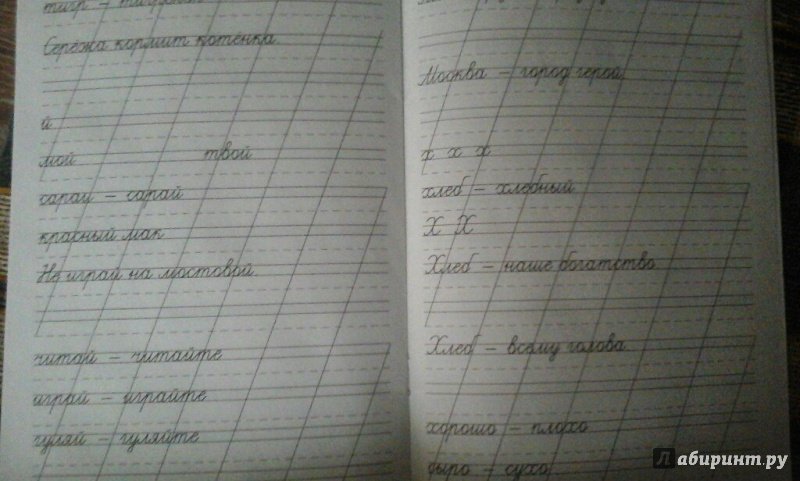 тигр –
Серёжа кормит котёнка.
й
мой твой
сараи – сарай
красный мак
Не играй на мостовой.
читай – читайте
играй – играйте
гуляй – гуляйте
Москва – город герой.
х х х
хлеб – хлебный
Х Х
Хлеб – наше богатство.
Хлеб – всему голова.
хорошо – плохо
сыро – сухо
Лабиринт.ру